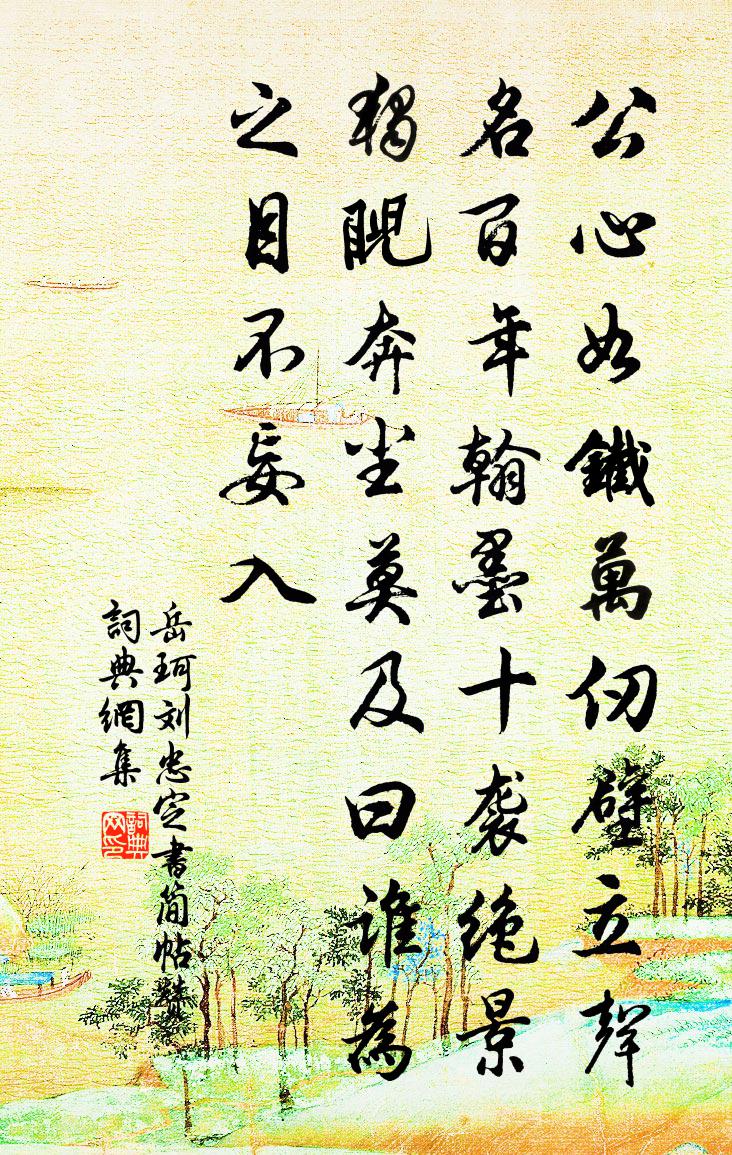 公心如鐵萬仞壁立聲
名百年翰墨十袭绝景
獨睨奔尘莫及曰谁為
之目不妄入
岳珂刘忠定書简帖贊
詞典網集
詞典网印